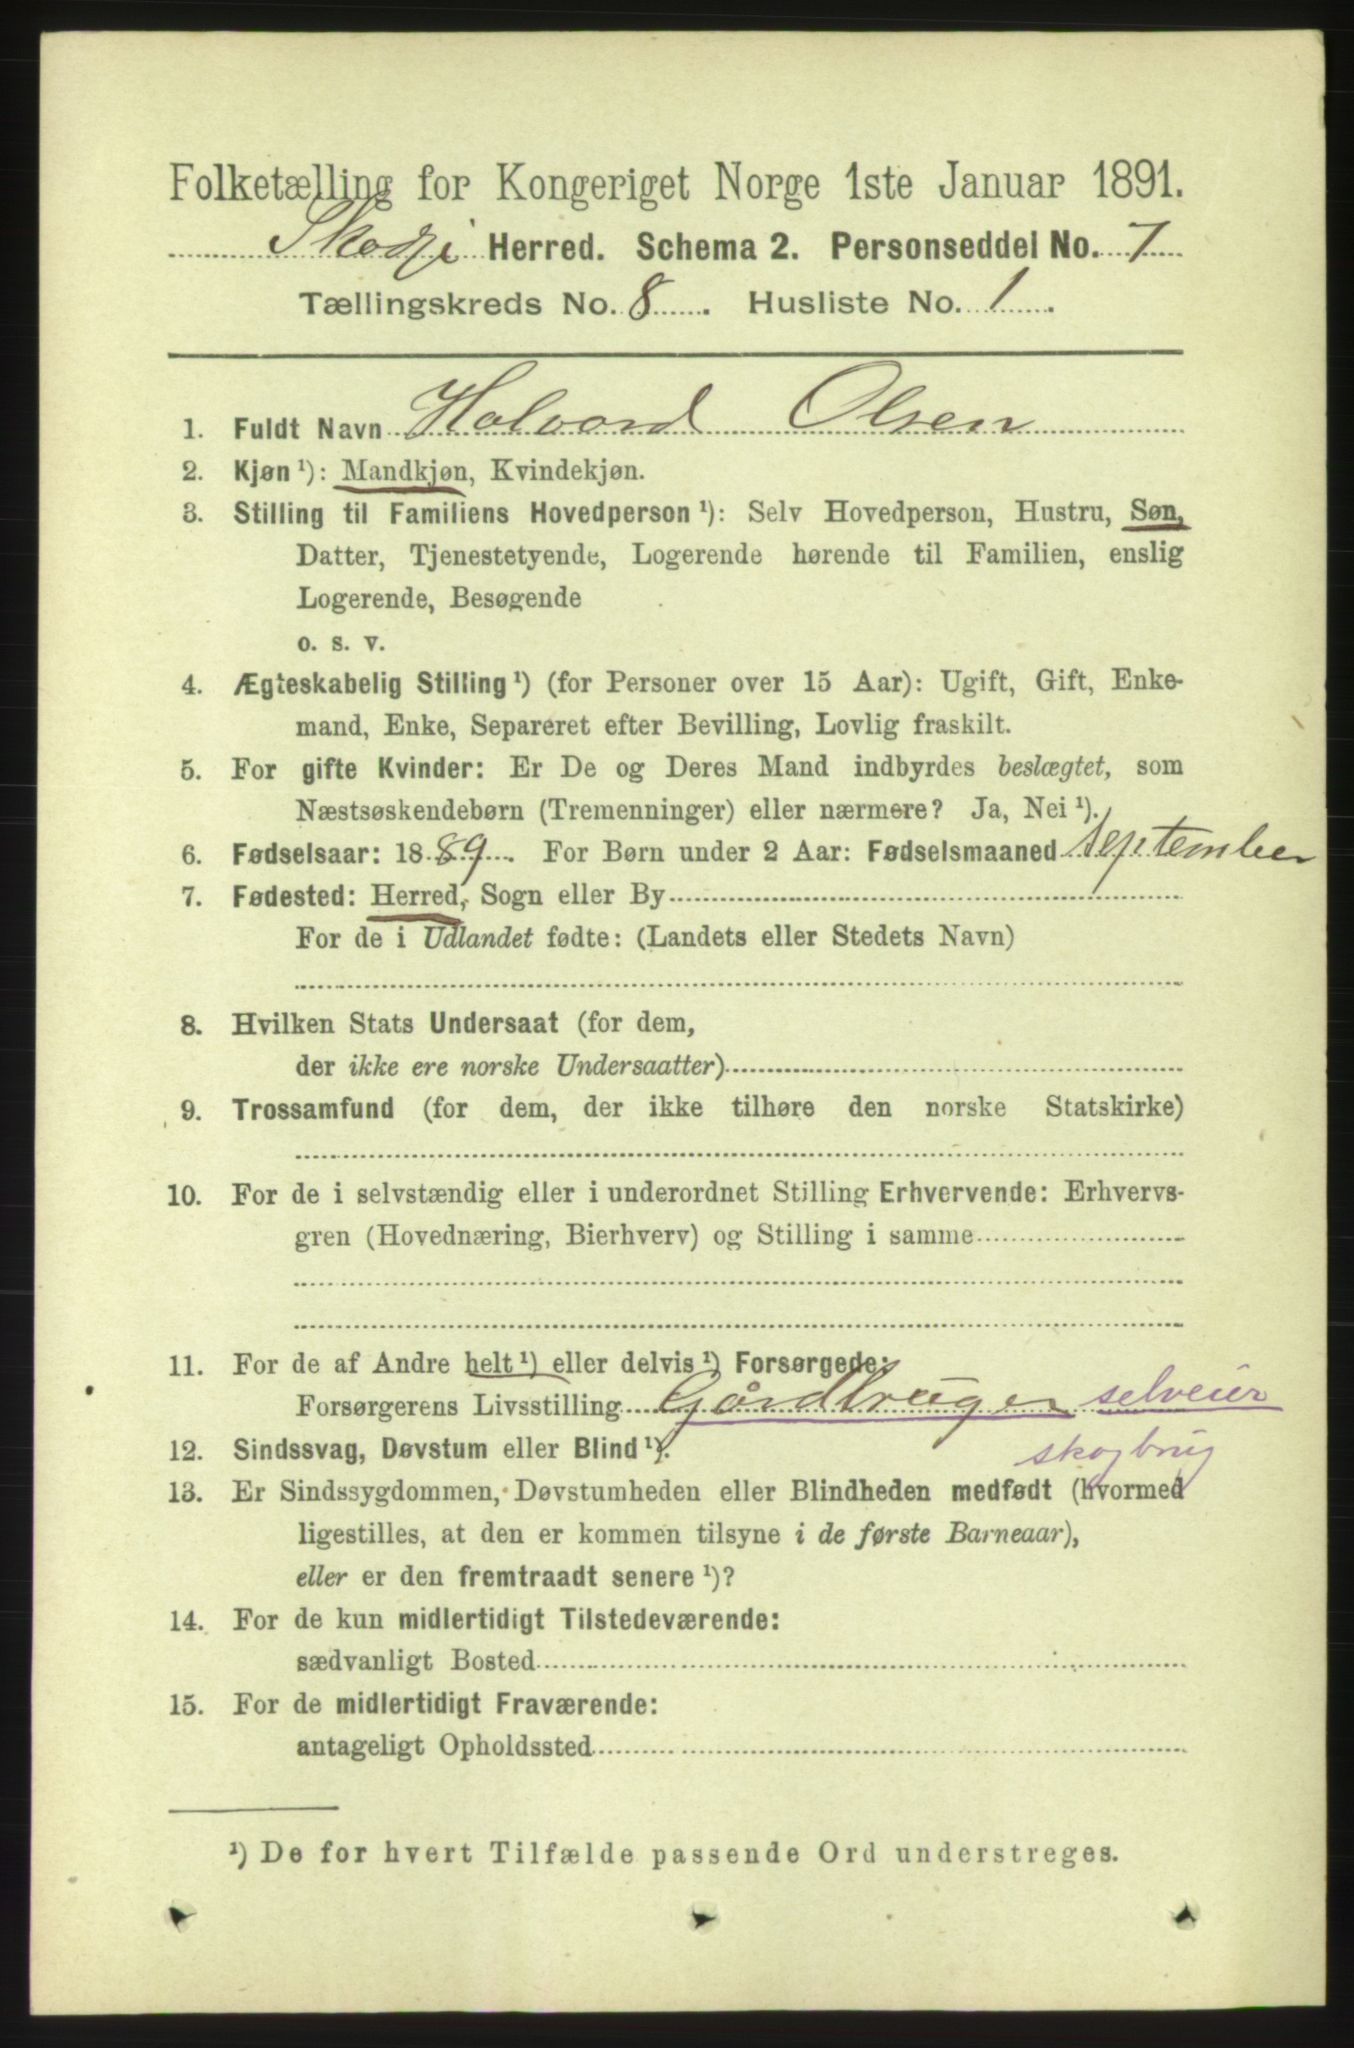 Folketælling for Kongeriget Norge 1ste Januar 1891.
Skodje Herred. Schema 2. Personseddel No. 7
Tællingskreds No. 8. Husliste No. 1.
1. Fuldt Navn Halvard Olsen
2. Kjøn ¹): Mandkjøn, Kvindekjøn.
3. Stilling til Familiens Hovedperson ¹): Selv Hovedperson, Hustru, Søn,
Datter, Tjenestetyende, Logerende hørende til Familien, enslig
Logerende, Besøgende
o. s. v.
4. Ægteskabelig Stilling ¹) (for Personer over 15 Aar): Ugift, Gift, Enke-
mand, Enke, Separeret efter Bevilling, Lovlig fraskilt.
5. For gifte Kvinder: Er De og Deres Mand indbyrdes beslægtet, som
Næstsøskendebørn (Tremenninger) eller nærmere? Ja, Nei ¹).
6. Fødselsaar: 1889. For Børn under 2 Aar: Fødselsmaaned September
7. Fødested: Herred, Sogn eller By
For de i Udlandet fødte: (Landets eller Stedets Navn)
8. Hvilken Stats Undersaat (for dem,
der ikke ere norske Undersaatter)
9. Trossamfund (for dem, der ikke tilhøre den norske Statskirke)
10. For de i selvstændig eller i underordnet Stilling Erhvervende: Erhvervs-
gren (Hovednæring, Bierhverv) og Stilling i samme
11. For de af Andre helt ¹) eller delvis ¹) Forsørgede:
Forsørgerens Livsstilling Gårdbruger selveier
skogbrug
12. Sindssvag, Døvstum eller Blind ¹).
13. Er Sindssygdommen, Døvstumheden eller Blindheden medfødt (hvormed
ligestilles, at den er kommen tilsyne i de første Barneaar),
eller er den fremtraadt senere ¹)?
14. For de kun midlertidigt Tilstedeværende:
sædvanligt Bosted
15. For de midlertidigt Fraværende:
antageligt Opholdssted
¹) De for hvert Tilfælde passende Ord understreges.